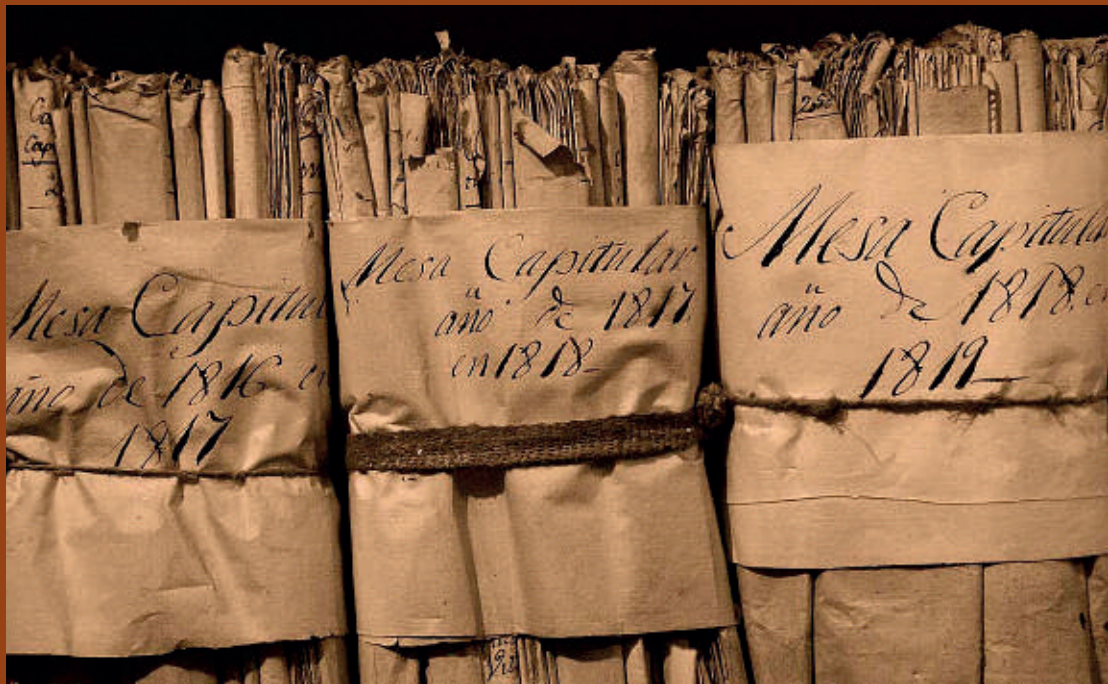 Mesa Capitul
año de 1816 en
1817
Mesa Capitular
año de 1817.
en 1818_
Mesa Capitular
año de 1818. en
1819_
250